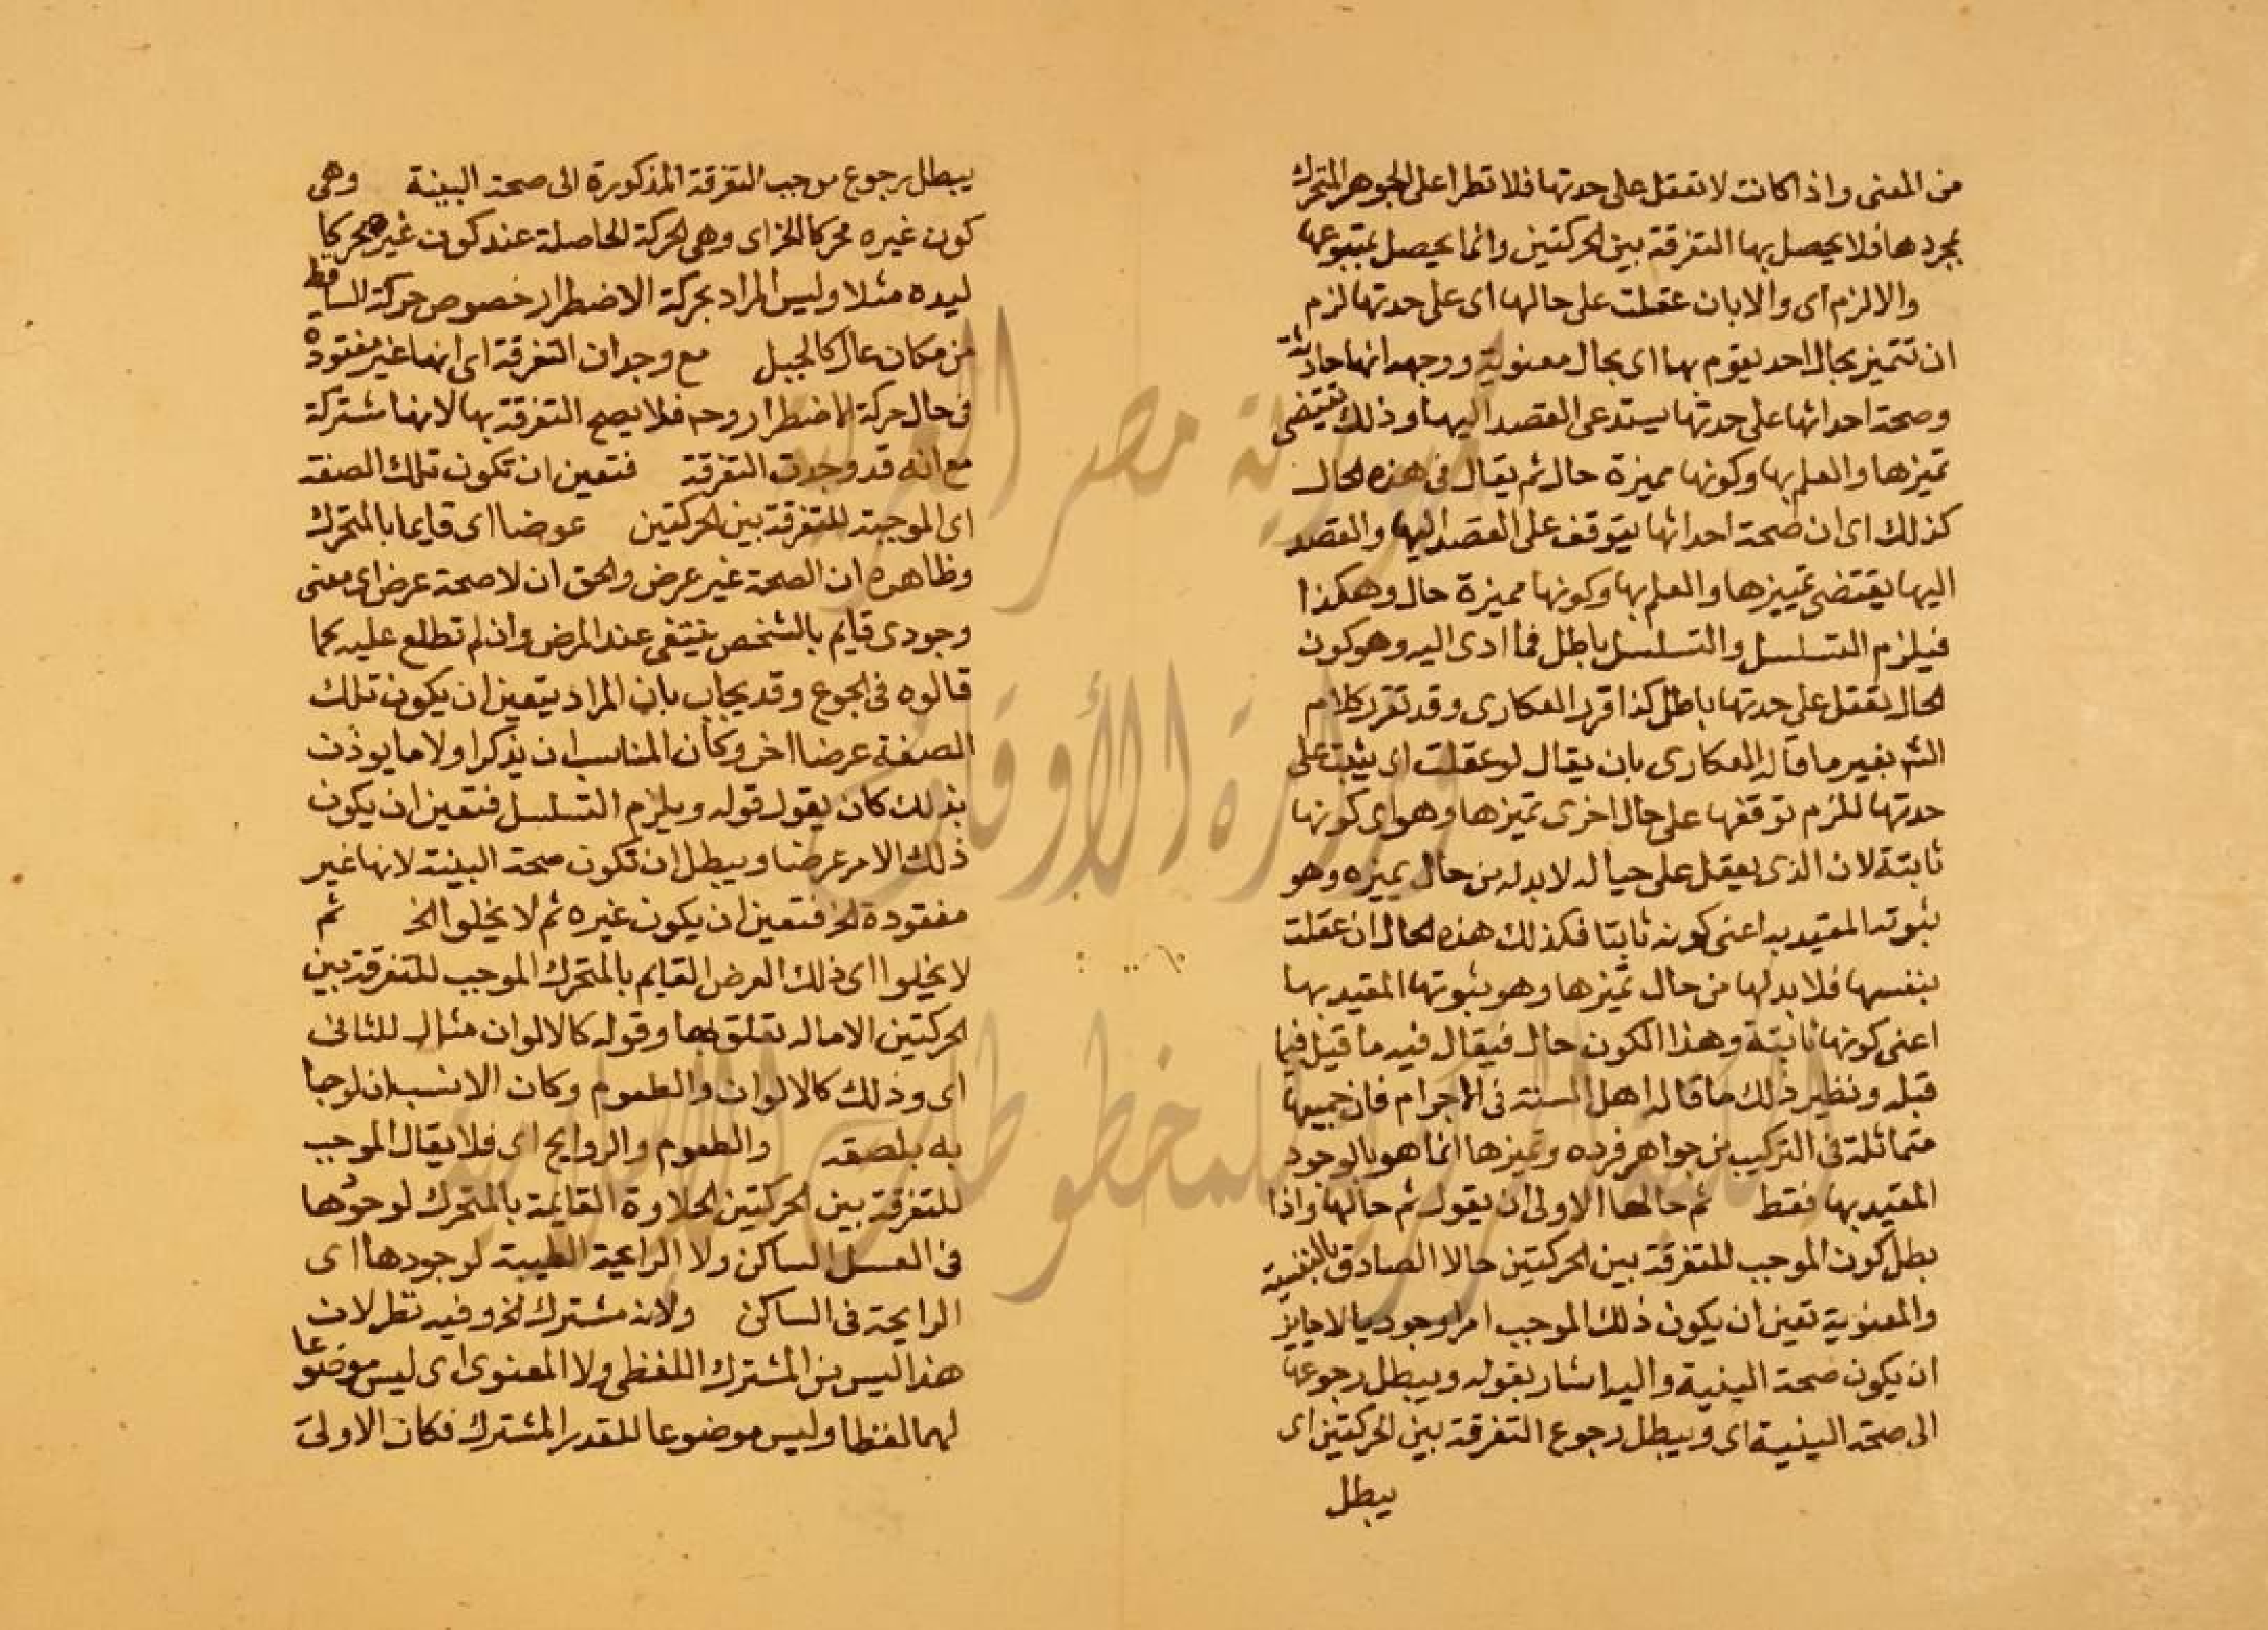 من المعنى واذا كانت لا تعقل على حدتها فلا تطرا على الجوهر المتحرك
بمجردها فلا يحصل بها التفرقة بين الحركتين وانما يحصل بمتبوعها
والا لزم اى والا بان عقلت على حالها اى على حدتها لزم
ان تتميز بحال احد يقوم بها اى بحال معنوية ووجهه انها حادثة
وصحة احداثها على حدتها يستدعى القصد اليها وذلك يقتضى
تميزها والعلم بها وكونها مميزة حال ثم يقال فى هذه الحال
كذلك اى ان صحة احداثها يتوقف على القصد اليها والقصد
اليها يقتضى تمييزها والعلم بها وكونها مميزة حال وهكذا
فيلزم التسلسل والتسلسل باطل فما ادى اليه وهو كون
الحال تعقل على حدتها باطل كذا قرر العكارى وقد تقرر كلام
الشم بغير ما قاله العكارى بان يقال لو عقلت اى يثبت على
حدتها للزم توقفها على حال اخرى تميزها وهو اى كونها
ثابتة لان الذى يعقل على حياله لا بد له من حال يميزه وهو
ثبوته المقيد به اعنى كونه ثابتا فكذلك هذه الحال ان عقلت
بنفسها فلا بد لها من حال تميزها وهو ثبوتها المقيد بها
اعنى كونها ثابتة وهذا الكون حال فيقال فيه ما قيل فيما
قبله ونظير ذلك ما قاله اهل السنة فى الاجرام فان جميعها
متماثلة فى التركيب من جواهر فرده وتميزها انما هو بالوجود
المقيد بها فقط ثم حالها الاولى ان يقول ثم حالها واذا
بطل كون الموجب للتفرقة بين الحركتين حالا الصادق بالنفسية
والمعنوية تعين ان يكون ذلك الموجب امرا وجوديا لا جايز
ان يكون صحة البنية واليه اشار بقوله ويبطل رجوعها
الى صحة البنية اى ويبطل رجوع التفرقة بين الحركتين اى
يبطل
يبطل رجوع موجب التفرقة المذكورة الى صحة البنية وهى
كون غيره محركا الخ اى وهى الحركة الحاصلة عند كون غيره محركا
ليده مثلا وليس المراد بحركة الاضطرار خصوص حركة الساقط
من مكان عال كالجبل مع وجدان التفرقة اى انها غير مفقودة
فى حال حركة الاضطرار وحـ فلا يصح التفرقة بها لانها مشتركة
مع انه قد وجدت التفرقة فتعين ان تكون تلك الصفة
اى الموجبة للتفرقة بين الحركتين عوضا اى قايما بالمتحرك
وظاهره ان الصحة غير عرض والحق ان لا صحة عرض اى معنى
وجودى قايم بالشخص ينتفى عند المرض وان لم تطلع عليه كما
قالوه فى الجوع وقد يجاب بان المراد يتعين ان يكون تلك
الصفة عرضا اخر وكان المناسب ان يذكر اولا ما يوذن
بذلك كان يقول قوله ويلزم التسلسل فتعين ان يكون
ذلك الامر عرضا ويبطل ان تكون صحة البنية لانها غير
مفقودة الخ فتعين ان يكون غيره ثم لا يخلوا الخ ثم
لا يخلوا اى ذلك العرض القايم بالمتحرك الموجب للتفرقة بين
الحركتين الا ماله تعلق بها وقوله كالالوان مثال للثانى
اى وذلك كالالوان والطعوم وكان الانسب ان لو جا
به بلصقه والطعوم والروايح اى فلا يقال الموجب
للتفرقة بين الحركتين الحلاوة القايمة بالمتحرك لوجودها
فى العسل الساكن ولا الرايحة الطيبة لوجودها اى
الرايحة فى الساكن ولانه مشترك الخ وفيه نظر لان
هذا ليس من المشترك اللفظى ولا المعنوى اى ليس موضوعا
لهما لفظا وليس موضوعا للقدر المشترك فكان الاولى